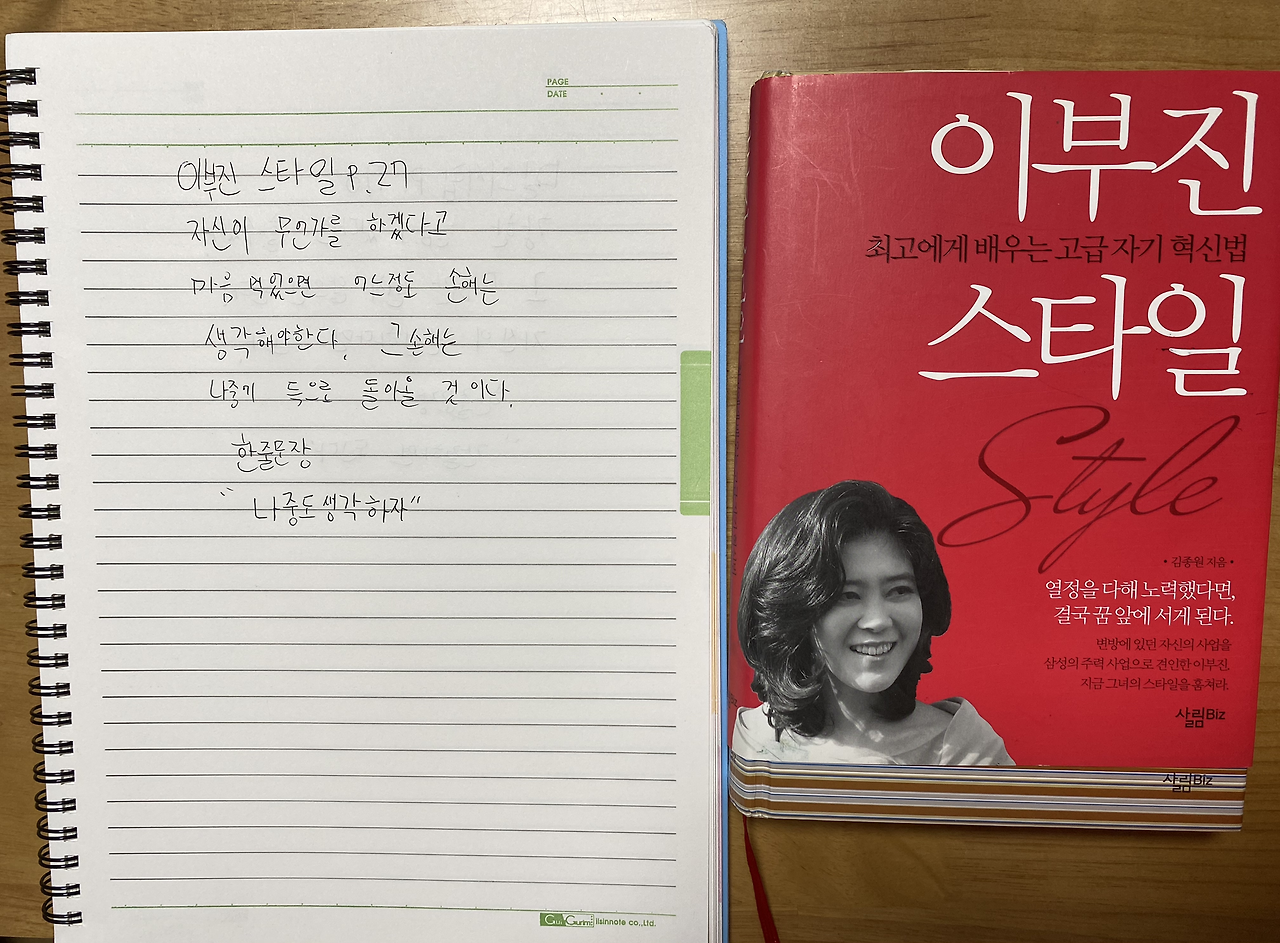 PAGE
DATE
이부진 스타일 P.27
자신이 무언가를 하겠다고
마음 먹었으면 어느정도 손해는
생각해야한다. 그 손해는
나중에 득으로 돌아올 것이다.
한줄문장
"나중도 생각하자"
Gurim iisinnote co.,Ltd.
이부진
최고에게 배우는 고급 자기 혁신법
스타일
Style
• 김종원 지음 •
열정을 다해 노력했다면,
결국 꿈 앞에 서게 된다.
변방에 있던 자신의 사업을
삼성의 주력 사업으로 견인한 이부진,
지금 그녀의 스타일을 훔쳐라.
살림Biz
살림Biz